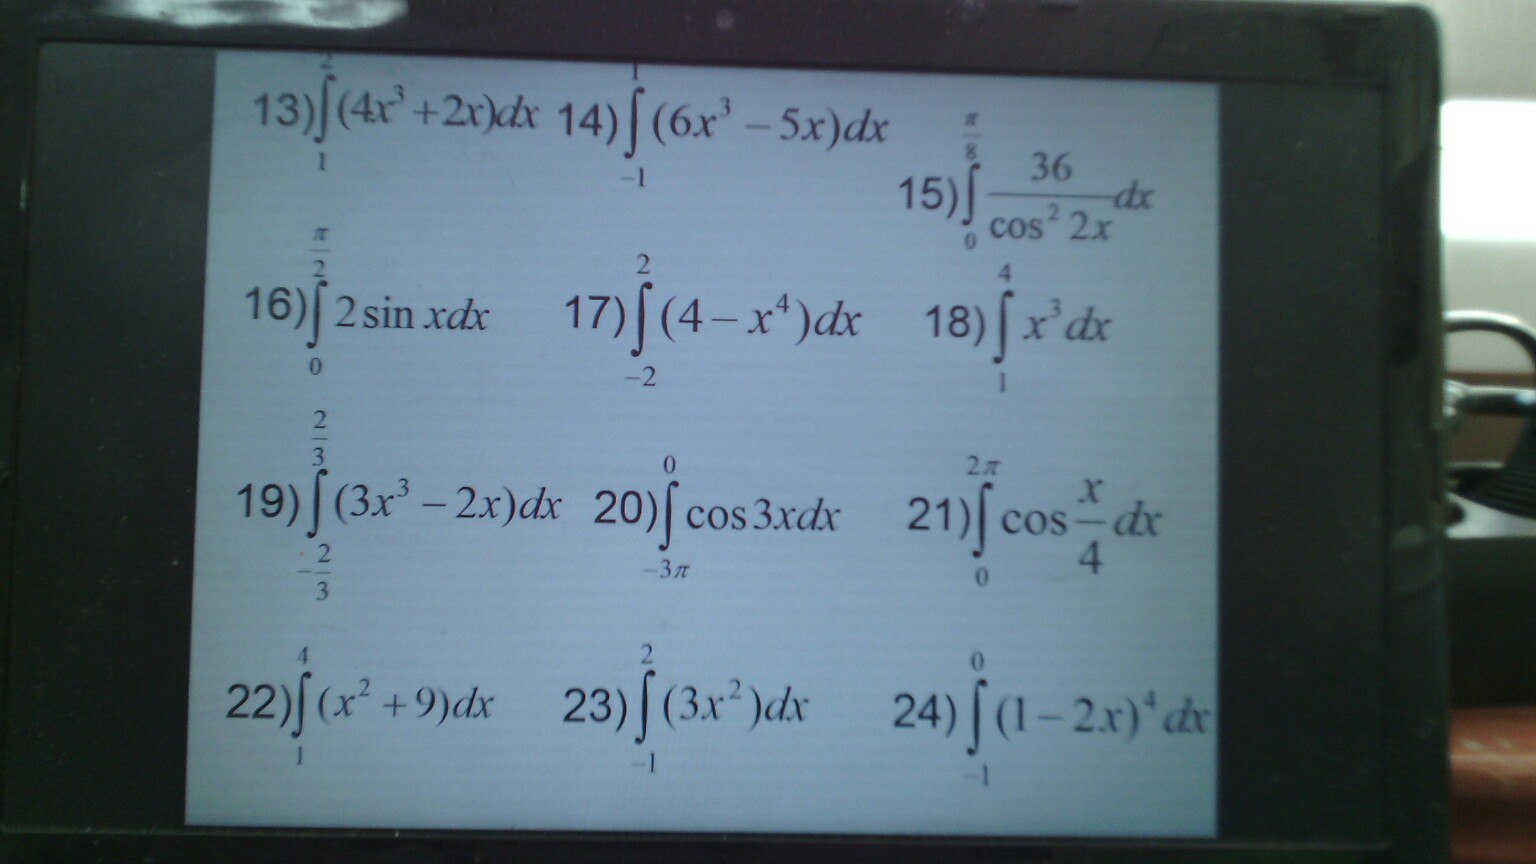 13) ∫₁² (4x³ + 2x)dx 14) ∫₋₁¹ (6x³ − 5x)dx
15) ∫₀^(π/8) 36/(cos² 2x) dx
16) ∫₀^(π/2) 2 sin xdx 17) ∫₋₂² (4 − x⁴)dx 18) ∫₁⁴ x³dx
19) ∫₋₂/₃^(2/3) (3x³ − 2x)dx 20) ∫₋₃π⁰ cos 3xdx 21) ∫₀^(2π) cos x/4 dx
22) ∫₁⁴ (x² + 9)dx 23) ∫₋₁² (3x²)dx 24) ∫₋₁⁰ (1 − 2x)⁴dx